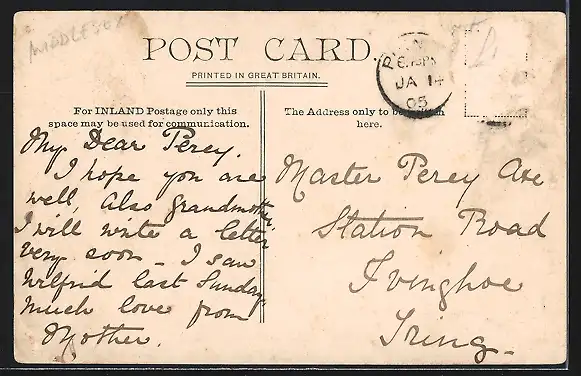 MIDDLESEX
POST CARD.
PRINTED IN GREAT BRITAIN.
For INLAND Postage only this
space may be used for communication.
The Address only to be
here.
6. PM
JA 14
05
My Dear Percy.
I hope you are
well, also Grandmother,
I will write a letter
very soon - I saw
Wilfrid last Sunday.
Much love from
Mother.
Master Percy Axe
Station Road
Ivinghoe
Tring.